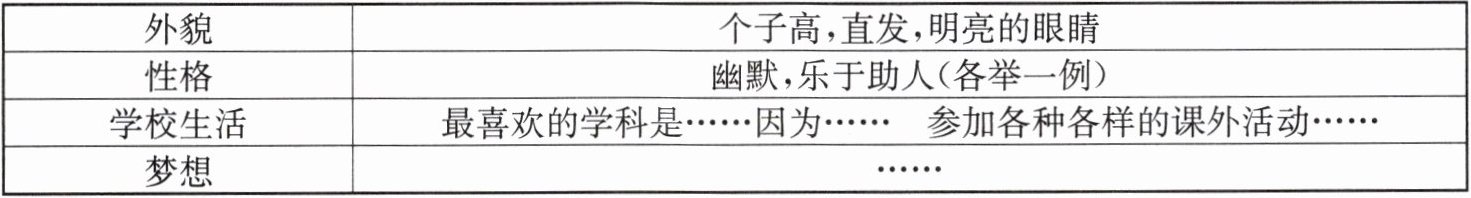 外貌 个子高,直发,明亮的眼睛
性格 幽默,乐于助人(各举一例)
学校生活 最喜欢的学科是……因为…… 参加各种各样的课外活动……
梦想 ……